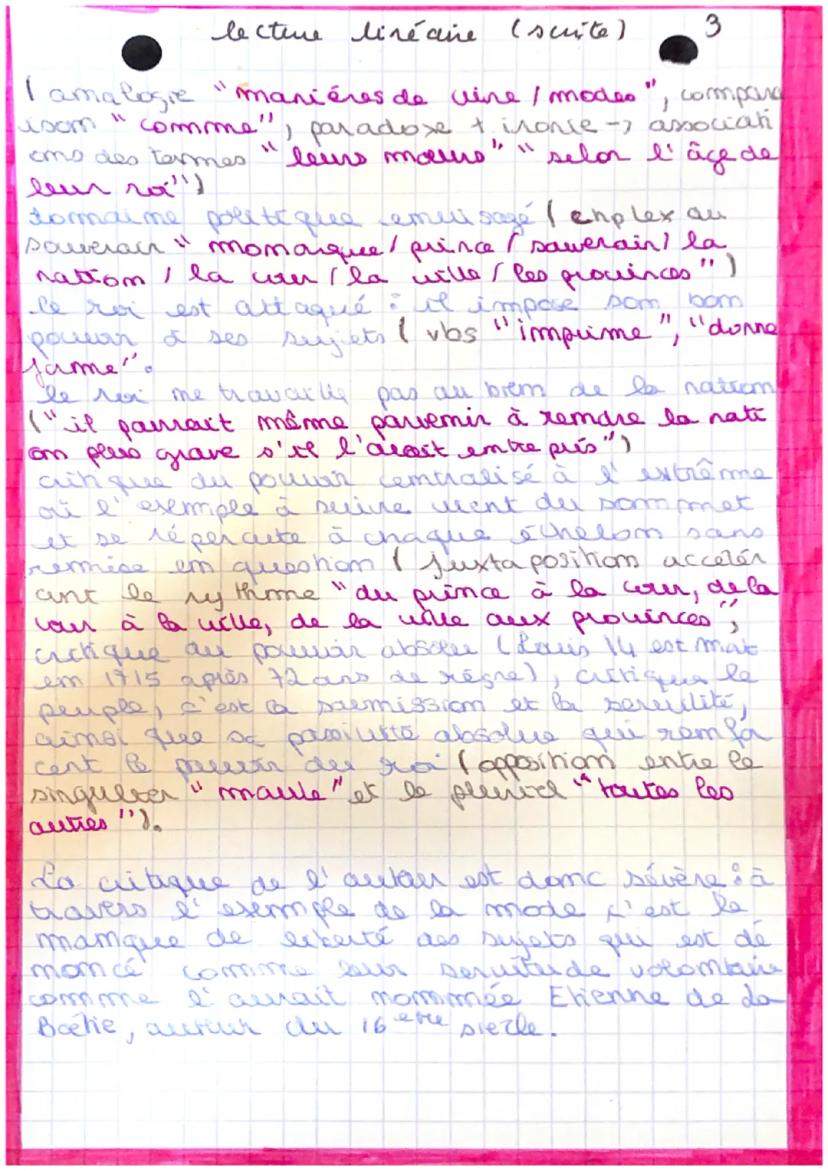 lecture linéaire (suite) 3
(analogie "maniéres de vivre / modes", compara
ison "comme", paradoxe + ironie -> associati
ons des termes "leurs mœurs" "selon l'âge de
leur roi")
domaine politique envisagé (chplex du
souverain "monarque / prince / souverain / la
nation / la cour / la ville / les provinces")
le roi est attaqué : il impose son bon
pouvoir à ses sujets (vbs "imprime", "donne
forme".
le roi ne travaille pas au bien de la nation
("il pourrait même parvenir à rendre la nati
on plus grave s'il l'avait entrepris")
critique du pouvoir centralisé à l'extrême
où l'exemple à suivre vient du sommet
et se répercute à chaque échelon sans
remise en question (juxtaposition accélér
ant le rythme "du prince à la cour, de la
cour à la ville, de la ville aux provinces",
critique du pouvoir absolu (Louis 14 est mort
en 1715 après 72 ans de règne), critique le
peuple, c'est la soemission et la servilité,
ainsi que sa passivité absolue qui renfor
cent le pouvoir du roi (opposition entre le
singulier "moule" et le pluriel "toutes les
autres").
La critique de l'auteur est donc sévère : à
travers l'exemple de la mode c'est le
manque de liberté des sujets qui est dé
noncé comme leur servitude volontaire
comme l'aurait nommée Etienne de La
Boétie, auteur du 16 ème siècle.